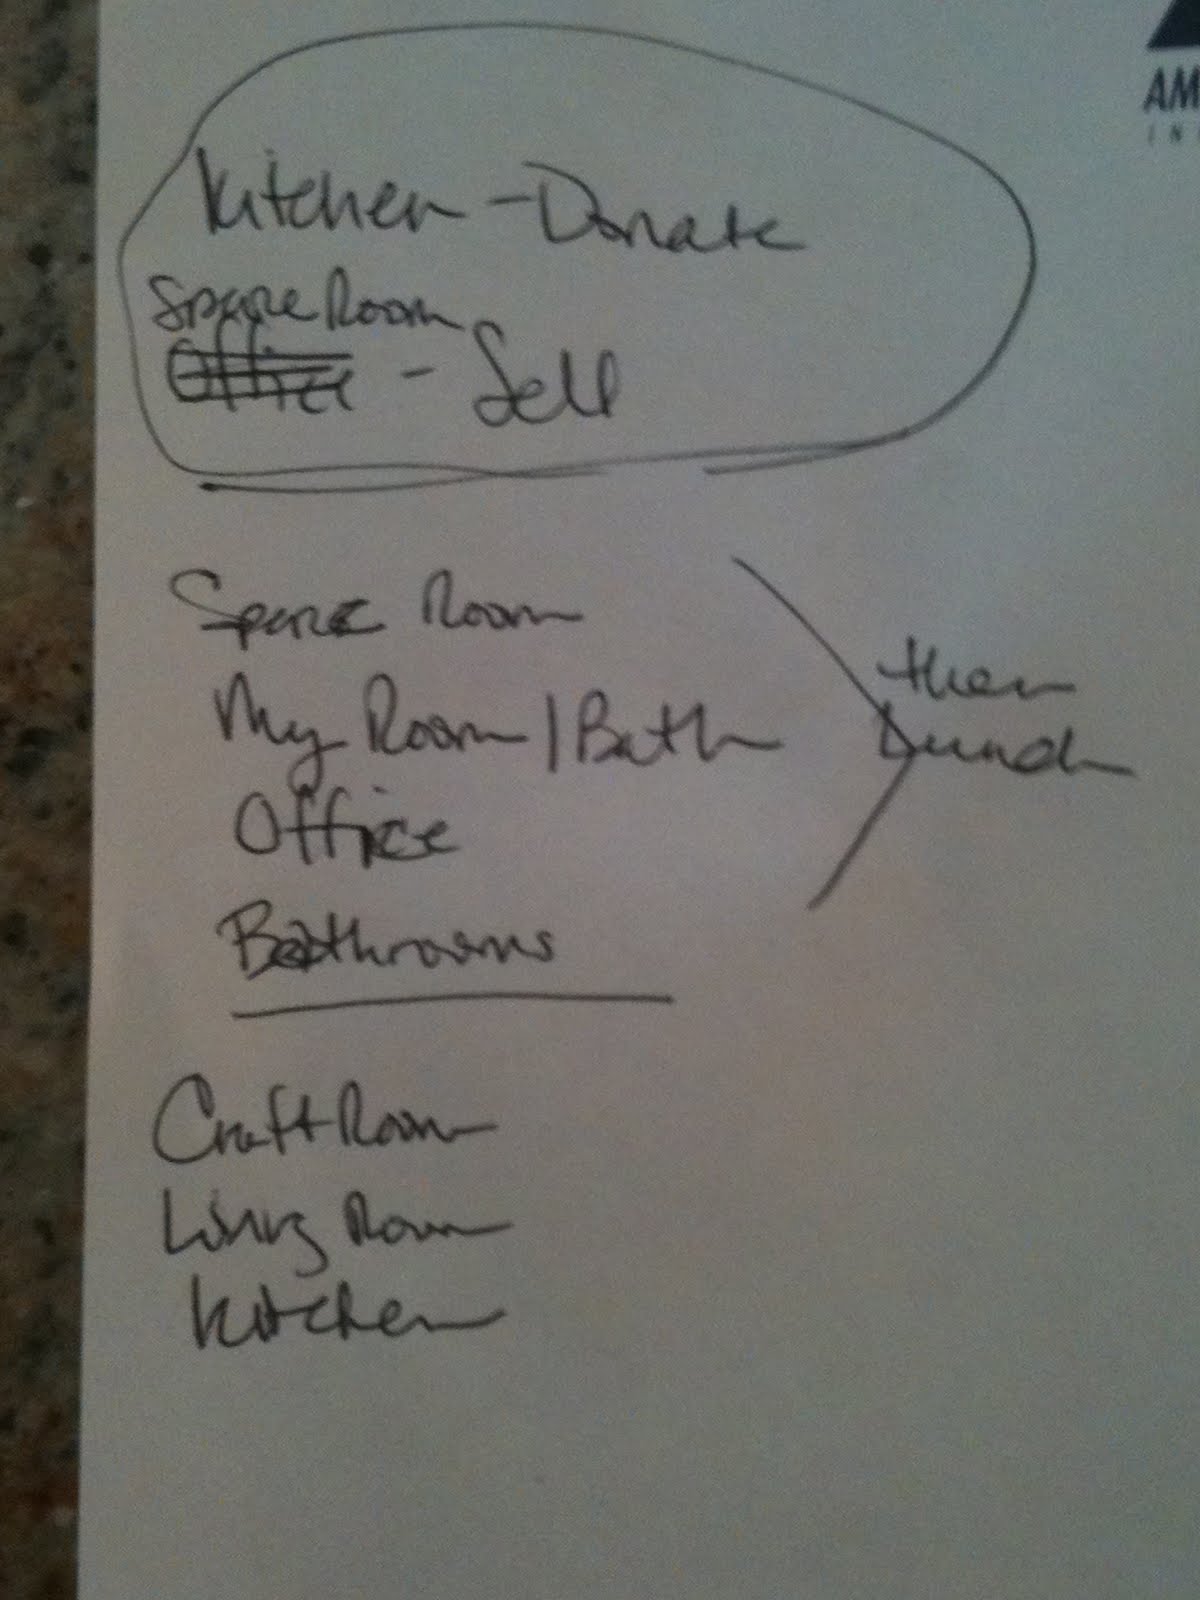 AM
IN
Kitchen - Donate
Spare Room
Office - Sell
Spare Room
My Room / Bath
Office
Bathrooms
then
Lunch
Craft Room
Living Room
Kitchen